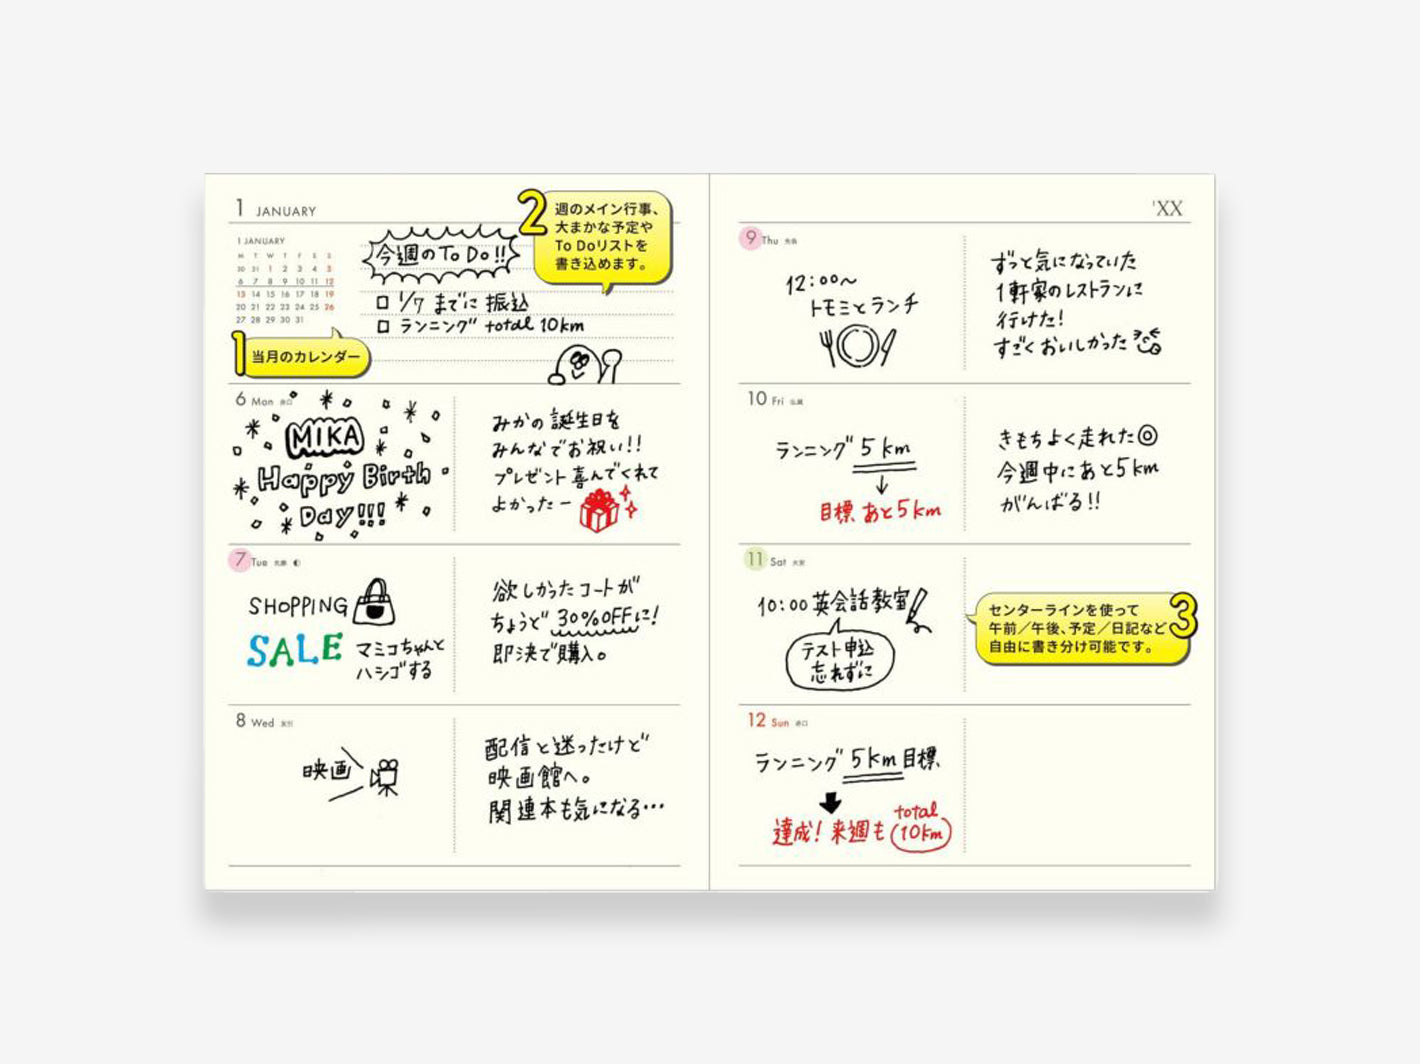 1 JANUARY
1 JANUARY
M T W T F S S
30 31 1 2 3 4 5
6 7 8 9 10 11 12
13 14 15 16 17 18 19
20 21 22 23 24 25 26
27 28 29 30 31
1 当月のカレンダー
今週のTo Do!!
□ 1/7 までに振込
□ ランニング total 10km
2 週のメイン行事、
大まかな予定や
To Doリストを
書き込めます。
6 Mon 赤口
MIKA
Happy Birth
Day!!!
みかの誕生日を
みんなでお祝い!!
プレゼント喜んでくれて
よかったー
7 Tue 先勝
SHOPPING
SALE
マミコちゃんと
ハシゴする
欲しかったコートが
ちょうど30%OFFに!
即決で購入。
8 Wed 友引
映画
配信と迷ったけど
映画館へ。
関連本も気になる…
'XX
9 Thu 先負
12:00〜
トモミとランチ
ずっと気になっていた
1軒家のレストランに
行けた!
すごくおいしかった
10 Fri 仏滅
ランニング 5km
↓
目標 あと5km
きもちよく走れた◎
今週中にあと5km
がんばる!!
11 Sat 大安
10:00 英会話教室
テスト申込
忘れずに
センターラインを使って
午前/午後、予定/日記など
自由に書き分け可能です。
3
12 Sun 赤口
ランニング 5km目標
達成! 来週も total
10km